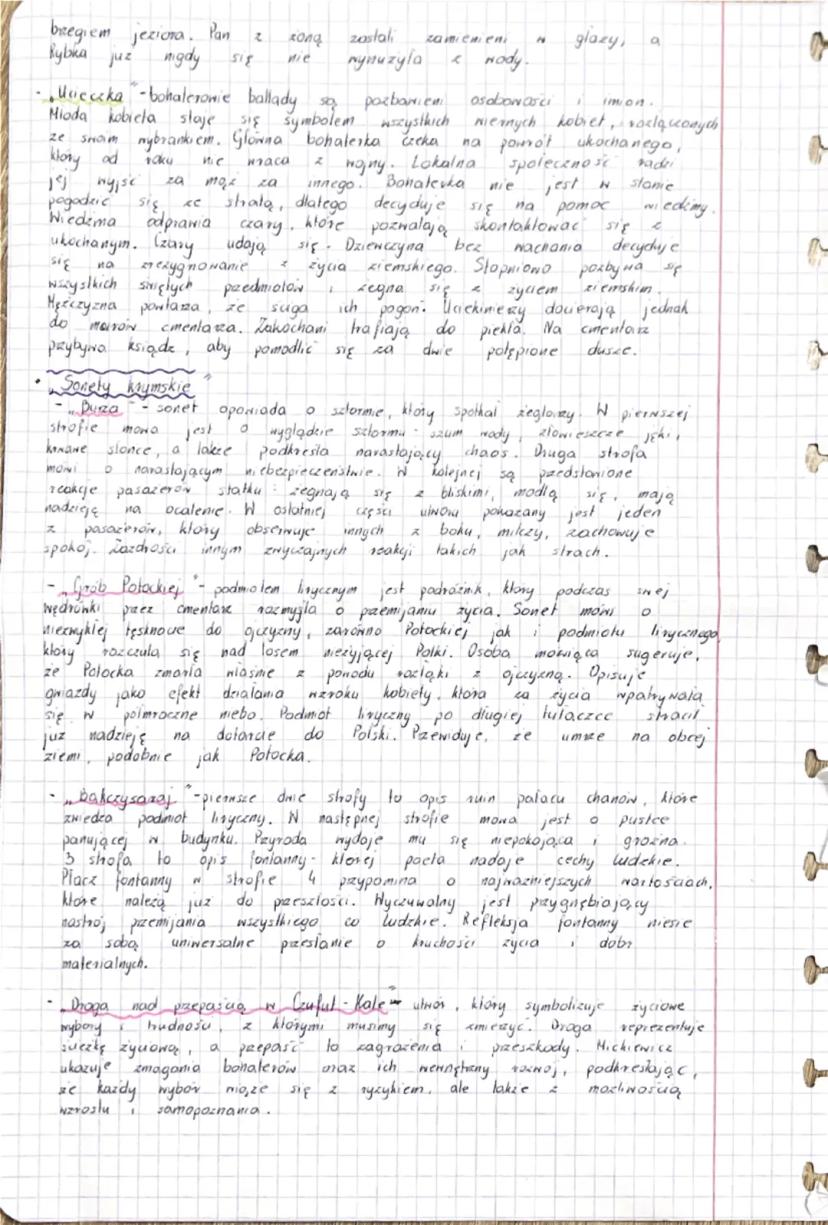 brzegiem jeziora. Pan z żoną zostali zamienieni w głazy, a
Rybka już nigdy się nie wynurzyła z wody.
- „Ucieczka” - bohaterowie ballady są pozbawieni osobowości i imion.
Młoda kobieta staje się symbolem wszystkich wiernych kobiet, rozłączonych
ze swoim wybrankiem. Główna bohaterka czeka na powrót ukochanego,
który od roku nie wraca z wojny. Lokalna społeczność radzi
jej wyjść za mąż za innego. Bohaterka nie jest w stanie
pogodzić się ze stratą, dlatego decyduje się na pomoc wiedźmy.
Wiedźma odprawia czary, które pozwalają skontaktować się z
ukochanym. Czary udają się. Dziewczyna bez wachania decyduje
się na zrezygnowanie z życia ziemskiego. Stopniowo pozbywa się
wszystkich świętych przedmiotów i żegna się z życiem ziemskim.
Mężczyzna powtarza, że ściga ich pogoń. Uciekinierzy docierają jednak
do murów cmentarza. Zakochani trafiają do piekła. Na cmentarz
przybywa ksiądz, aby pomodlić się za dwie potępione dusze.
• „Sonety krymskie”
- „Burza” - sonet opowiada o sztormie, który spotkał żeglarzy. W pierwszej
strofie mowa jest o wyglądzie sztormu: szum wody, złowieszcze jęki,
krwawe słońce, a także podkreśla narastający chaos. Druga strofa
mówi o narastającym niebezpieczeństwie. W kolejnej są przedstawione
reakcje pasażerów statku: żegnają się z bliskimi, modlą się, mają
nadzieję na ocalenie. W ostatniej części utworu pokazany jest jeden
z pasażerów, który obserwuje innych z boku, milczy, zachowuje
spokój. Zazdrości innym zwyczajnych reakcji takich jak strach.
- „Grób Potockiej” - podmiotem lirycznym jest podróżnik, który podczas swej
wędrówki przez cmentarz rozmyśla o przemijaniu życia. Sonet mówi o
niezwykłej tęsknocie do ojczyzny, zarówno Potockiej jak i podmiotu lirycznego,
który rozczula się nad losem nieżyjącej Polki. Osoba mówiąca sugeruje,
że Potocka zmarła właśnie z powodu rozłąki z ojczyzną. Opisuje
gwiazdy jako efekt działania wzroku kobiety, która za życia wpatrywała
się w półmroczne niebo. Podmiot liryczny po długiej tułaczce stracił
już nadzieję na dotarcie do Polski. Przewiduje, że umrze na obcej
ziemi, podobnie jak Potocka.
- „Bakczysaraj” - pierwsze dwie strofy to opis ruin pałacu chanów, które
zwiedza podmiot liryczny. W następnej strofie mowa jest o pustce
panującej w budynku. Przyroda wydaje mu się niepokojąca i groźna.
3 strofa to opis fontanny - której poeta nadaje cechy ludzkie.
Płacz fontanny w strofie 4 przypomina o najważniejszych wartościach,
które należą już do przeszłości. Wyczuwalny jest przygnębiający
nastrój przemijania wszystkiego co ludzkie. Refleksja fontanny niesie
za sobą uniwersalne przesłanie o kruchości życia i dóbr
materialnych.
- „Droga nad przepaścią w Czufut-Kale” - utwór, który symbolizuje życiowe
wybory i trudności, z którymi musimy się zmierzyć. Droga reprezentuje
ścieżkę życiową, a przepaść to zagrożenia i przeszkody. Mickiewicz
ukazuje zmagania bohaterów oraz ich wewnętrzny rozwój, podkreślając,
że każdy wybór wiąże się z ryzykiem, ale także z możliwością
wzrostu i samopoznania.